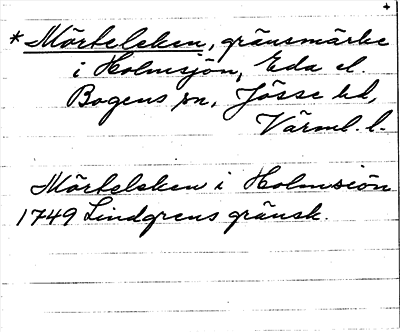 +
*Mörkelsken, gränsmärke
i Holmsjön, Eda el.
Bogens sn, Jösse hd,
Värml. l.
Mörkelsken i Holmsiön
1749 Lindgrens gränsk.